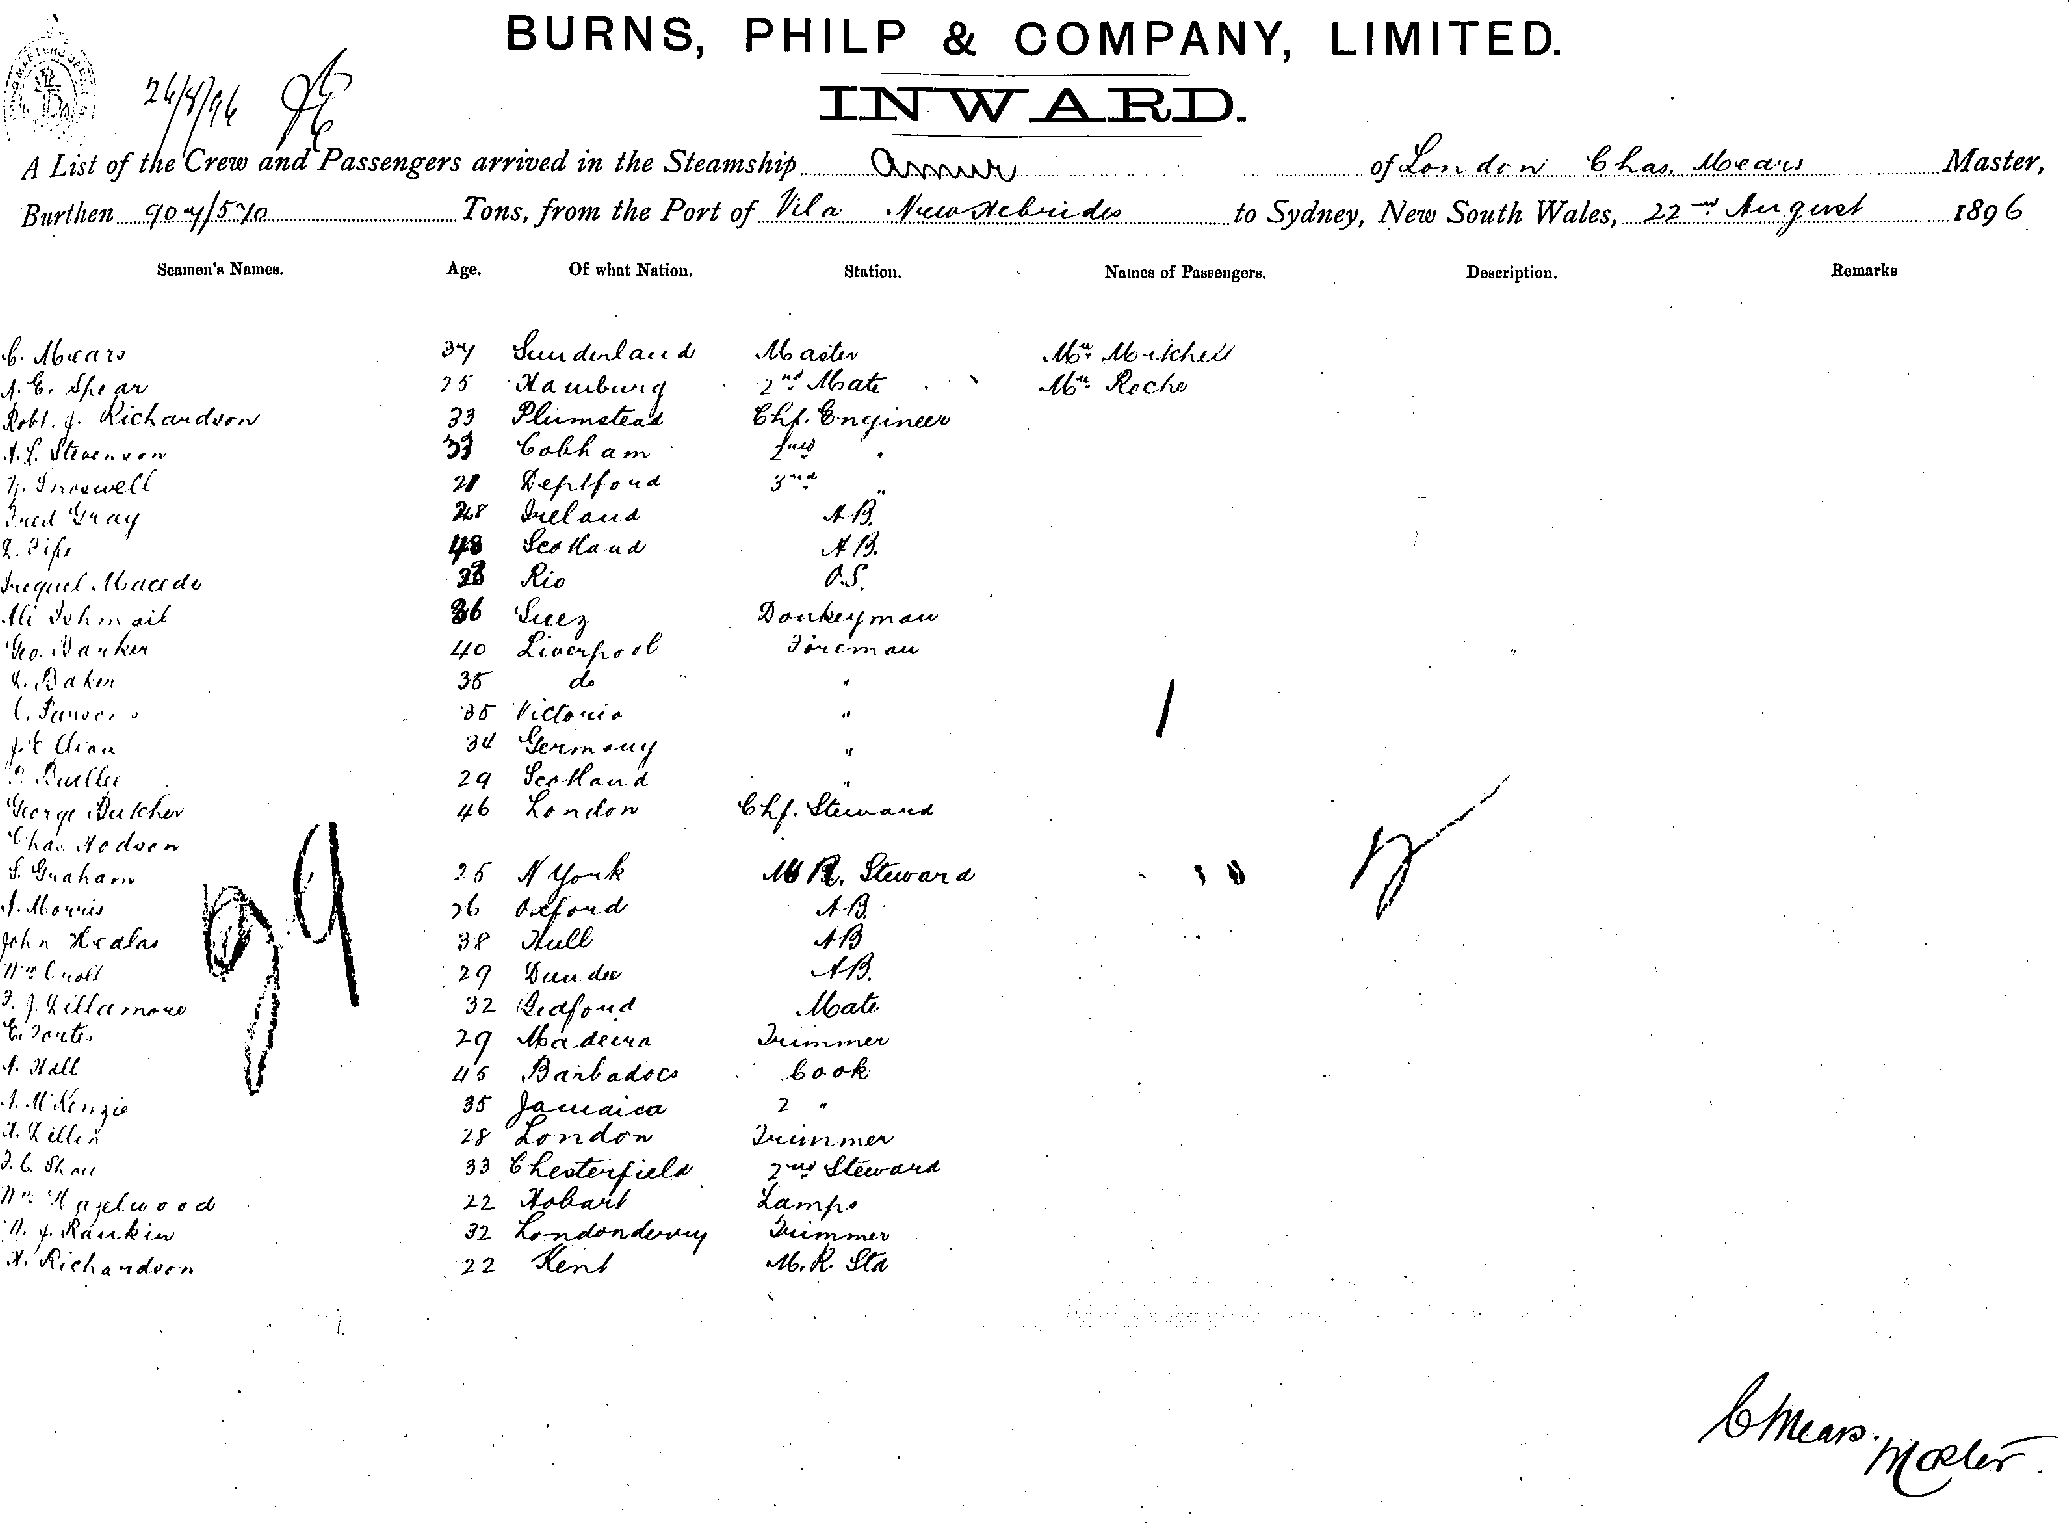 BURNS, PHILP & COMPANY, LIMITED.
INWARD.
26/8/96
A List of the Crew and Passengers arrived in the Steamship Amur of London Chas. Mears Master,
Burthen 907/570 Tons, from the Port of Vila New Hebrides to Sydney, New South Wales, 22nd August 1896
Seamen's Names. Age. Of what Nation. Station. Names of Passengers. Description. Remarks
C. Mears 37 Sunderland Master Mr. Mitchell
A. E. Spear 25 Hamburg 2nd Mate Mr Roche
Robt. J. Richardson 33 Plumstead Chf. Engineer
A. L. Stevenson Cobham 2nd "
Deptford 3rd "
Fred Gray 28 Ireland A.B.
Fife 48 Scotland A B.
Macedo Rio O.S.
Ali Ishmail 36 Suez Donkeyman
Geo. Barker 40 Liverpool Fireman
Baker 35 do "
C. Parsons 35 Victoria "
34 Germany "
29 Scotland "
George Butcher 46 London Chf. Steward
Chas. Hodson
S. Graham 25 N York M R. Steward
A. Morris 26 Oxford A B.
John Healas 38 Hull A B
Wm Croll 29 Dundee A B.
F. J. Lillamore 32 Bedford Mate
E. Fortes 29 Madeira Trimmer
A. Hall 45 Barbadoes Cook
A. McKenzie 35 Jamaica 2 "
28 London Trimmer
F. C. Shaw 33 Chesterfield 2nd Steward
Wm Hazelwood 22 Hobart Lamps
J. Rankin 32 Londonderry Trimmer
A. Richardson 22 Kent M. R. Std
29
C Mears.
Master.